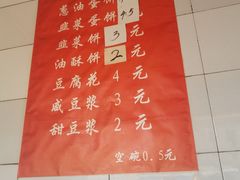 葱油蛋饼 4.5元
韭菜蛋饼 4.5元
韭菜饼 3元
油酥饼 2元
豆腐花 4元
咸豆浆 3元
甜豆浆 2元
空碗0.5元